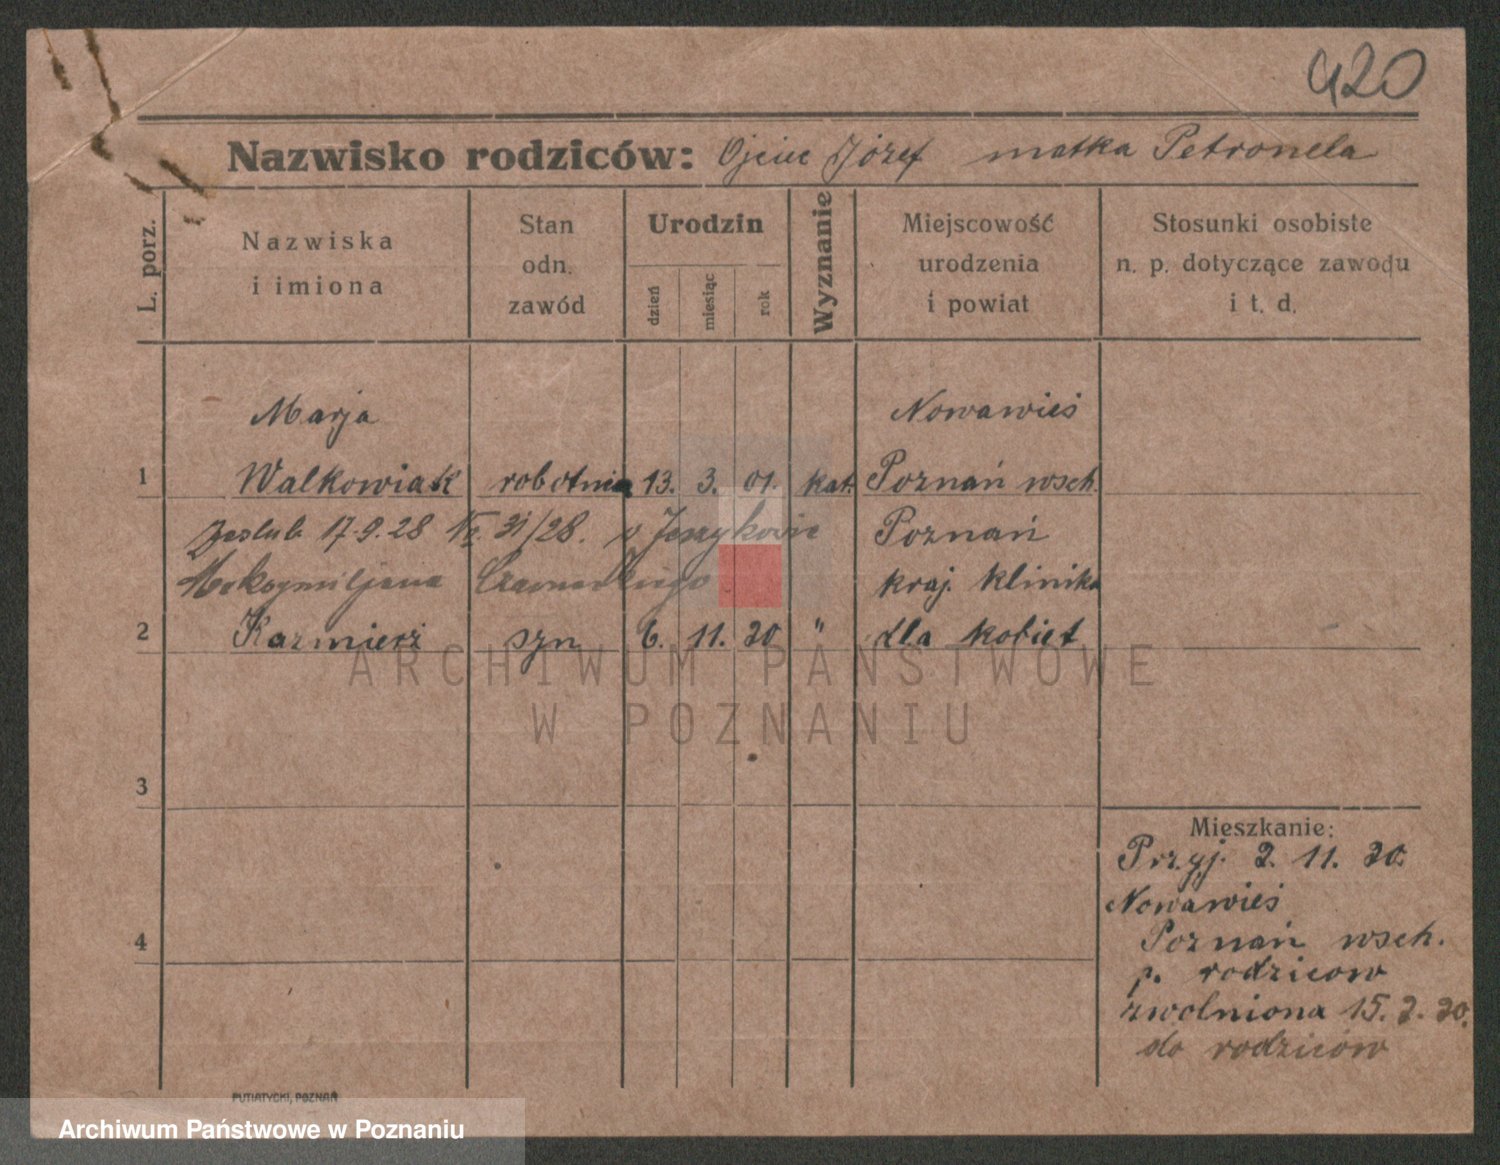 420
Nazwisko rodziców: Ojciec Józef matka Petronela
L. porz.
Nazwiska
i imiona
Stan
odn.
zawód
Urodzin
dzień
miesiąc
rok
Wyznanie
Miejscowość
urodzenia
i powiat
Stosunki osobiste
n. p. dotyczące zawodu
i t. d.
Marja Nowawieś
1 Walkowiak robotnica 13. 3. 01. kat. Poznań wsch.
17.9.28 31/28. Poznań
kraj. klinika
2 Kazmierz syn 6. 11. 20 " dla kobiet
ARCHIWUM PAŃSTWOWE
W POZNANIU
3
Mieszkanie:
Przyj. 2. 11. 20.
Nowawieś
4 Poznań wsch.
p. rodzicow
zwolniona 15. 2. 20.
do rodziców
PUTIATYCKI, POZNAŃ
Archiwum Państwowe w Poznaniu